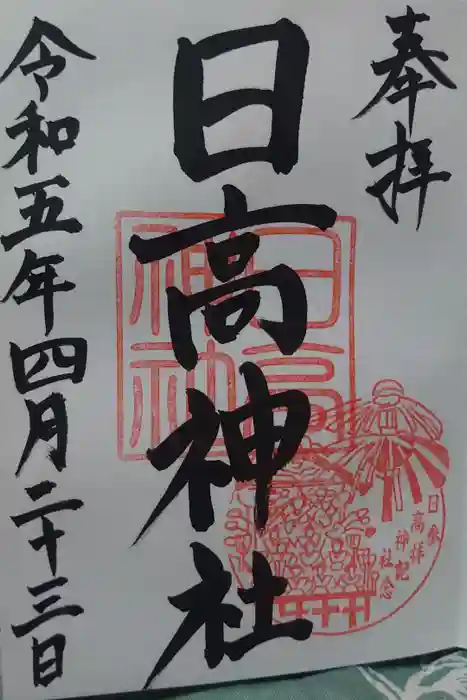 奉拝
日高神社
令和五年四月二十三日
日高
神社
参拝記念
日高神社